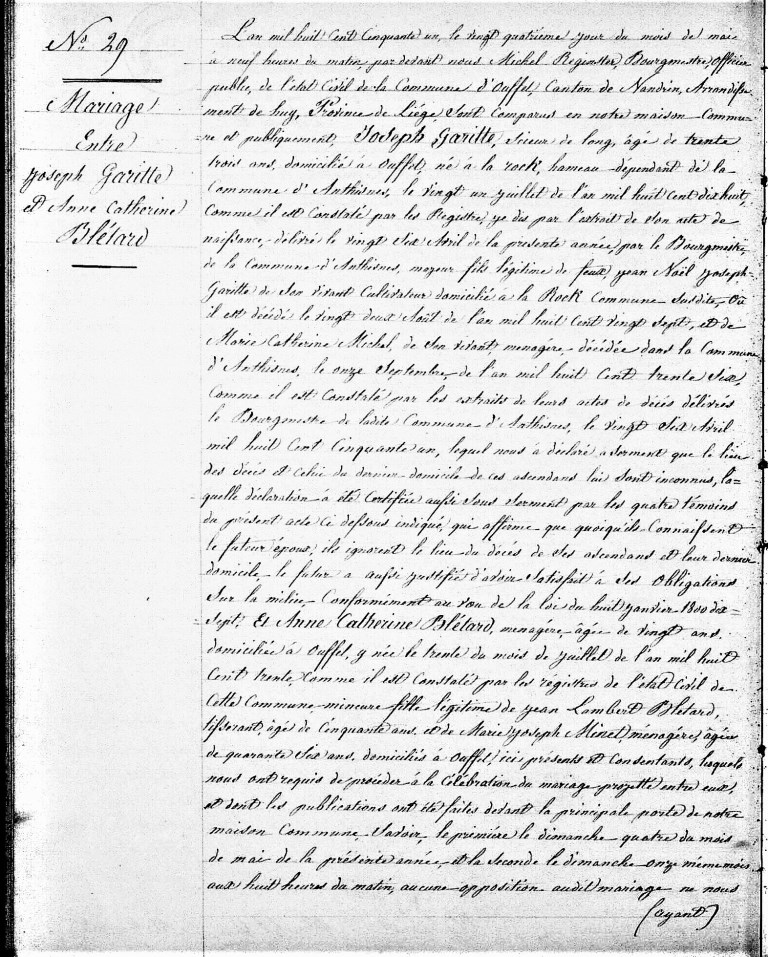 No. 29
Mariage
Entre
Joseph Garitte
et Anne Catherine
Blétard
L'an mil huit Cent Cinquante un, le vingt quatrième jour du mois de mai
à neuf heures du matin, par devant nous Michel Reginster, Bourgmestre, Officier
public, de l'état Civil de la Commune d'Ouffet, Canton de Nandrin, Arrondisse-
ment de huy, Province de Liége, Sont Comparus en notre maison Commu-
ne et publiquement, Joseph Garitte, Scieur de long, âgé de trente
trois ans, domicilié à Ouffet, né à la rock, hameau dépendant de la
Commune d'Anthisnes, le vingt un juillet de l'an mil huit Cent dix huit,
Comme il est Constaté par les Registre, je dis par l'extrait de son acte de
naissance, delivré le vingt Six Avril de la presente année, par le Bourgmestre
de la Commune d'Anthisnes, majeur fils légitime de feux, jean Noël joseph
Garitte de Son vivant Cultivateur domicilié à la Rock Commune Susdite, Où
il est décédé le vingt deux Août de l'an mil huit Cent vingt Sept, et de
Marie Catherine Michel, de Son vivant, menagère, décédée dans la Commune
d'Anthisnes, le onze Septembre de l'an mil huit Cent trente Six,
Comme il est Constaté par les extraits de leurs actes de décès délivrés
le Bourgmestre de ladite Commune d'Anthisnes, le vingt Six Avril
mil huit Cent Cinquante un, lequel nous à déclaré a Serment que le lieu
des décès et Celui du dernier domicile de ces ascendans lui Sont inconnus, la-
quelle déclaration à été Certifiée aussi Sous Serment par les quatre témoins
du présent acte Ci dessous indiqué, qui affirme que quoiqu'ils Connaissent
le futeur épous, ils ignorent le lieu du décès de Ses ascendans et leur dernier
domicile, le futur a aussi justifié d'avoir Satisfait à Ses Obligations
Sur la milice Conformément au vou de la loi du huit janvier 1800 dix-
Sept; Et Anne Catherine Blétard, menagère, âgée de vingt ans,
domiciliée à Ouffet, y née le trente du mois de juillet de l'an mil huit
Cent trente, Comme il est Constaté par les régistres de l'état Civil de
Cette Commune, mineure fille légitime de jean Lambert Blétard,
tisserant, âgé de Cinquante ans, et de Marie joseph Minet, menagère, âgée
de quarante Six ans, domiciliés à Ouffet, ici présents et Consentants, lesquels
nous ont requis de procéder à la Célébration du mariage projetté entre eux,
et dont les publications ont été faites devant la principale porte de notre
maison Commune, Savoir, le première le dimanche quatre du mois
de mai de la présente année, et la Seconde le dimanche onze même mois
aux huit heures du matin, aucune opposition audit mariage ne nous
(ayant)